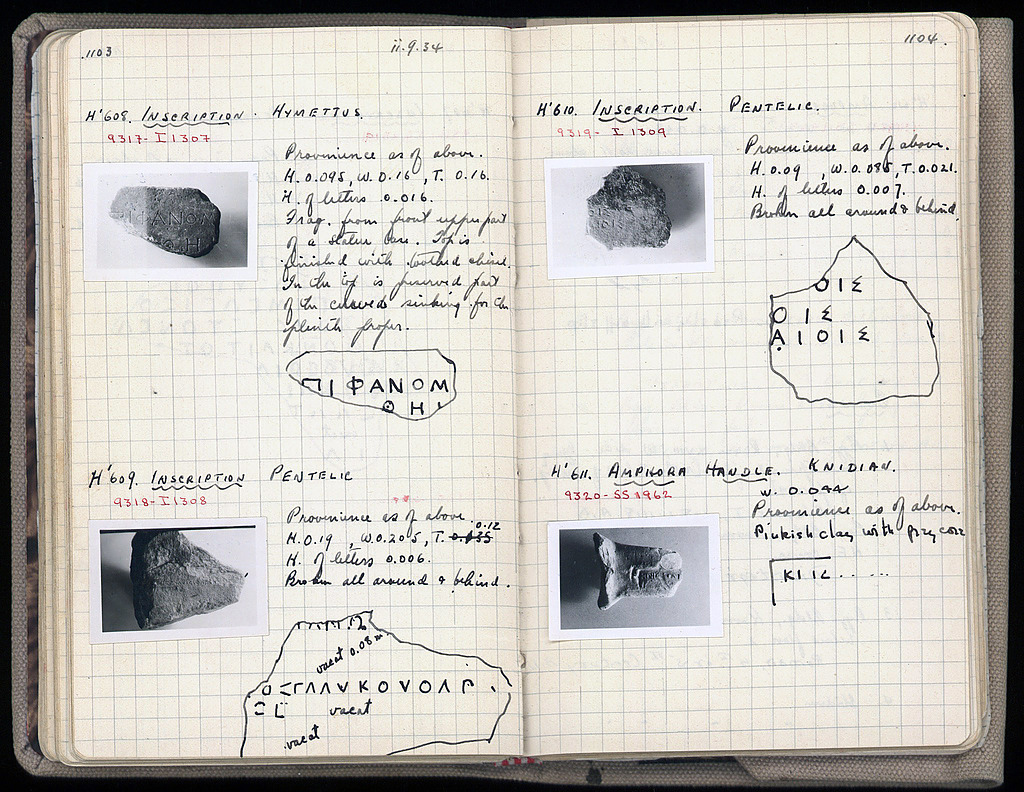 1103
ii.9.34
H'608. INSCRIPTION. HYMETTUS.
9317- I 1307
Provenience as of above.
H. 0.095, W. 0.16, T. 0.16.
H. of letters 0.016.
Frag. from front upper part
of a statue base. Top is
finished with toothed chisel.
In the top is preserved part
of the curved sinking for the
plinth proper.
ΠΙΦΑΝΟΜ
ΘΗΙ
H'609. INSCRIPTION PENTELIC
9318- I 1308
Provenience as of above.
0.12
H. 0.19, W. 0.205, T. 0.135
H. of letters 0.006.
Broken all around & behind.
vacat 0.08 m.
vacat
vacat
1104.
H'610. INSCRIPTION. PENTELIC.
9319- I 1309
Provenience as of above.
H. 0.09, W. 0.085, T. 0.021.
H. of letters 0.007.
Broken all around & behind.
ΟΙΣ
ΟΙΣ
ΑΙΟΙΣ
H'611. AMPHORA HANDLE. KNIDIAN.
9320- SS 1962
W. 0.044
Provenience as of above.
Pinkish clay with grey core